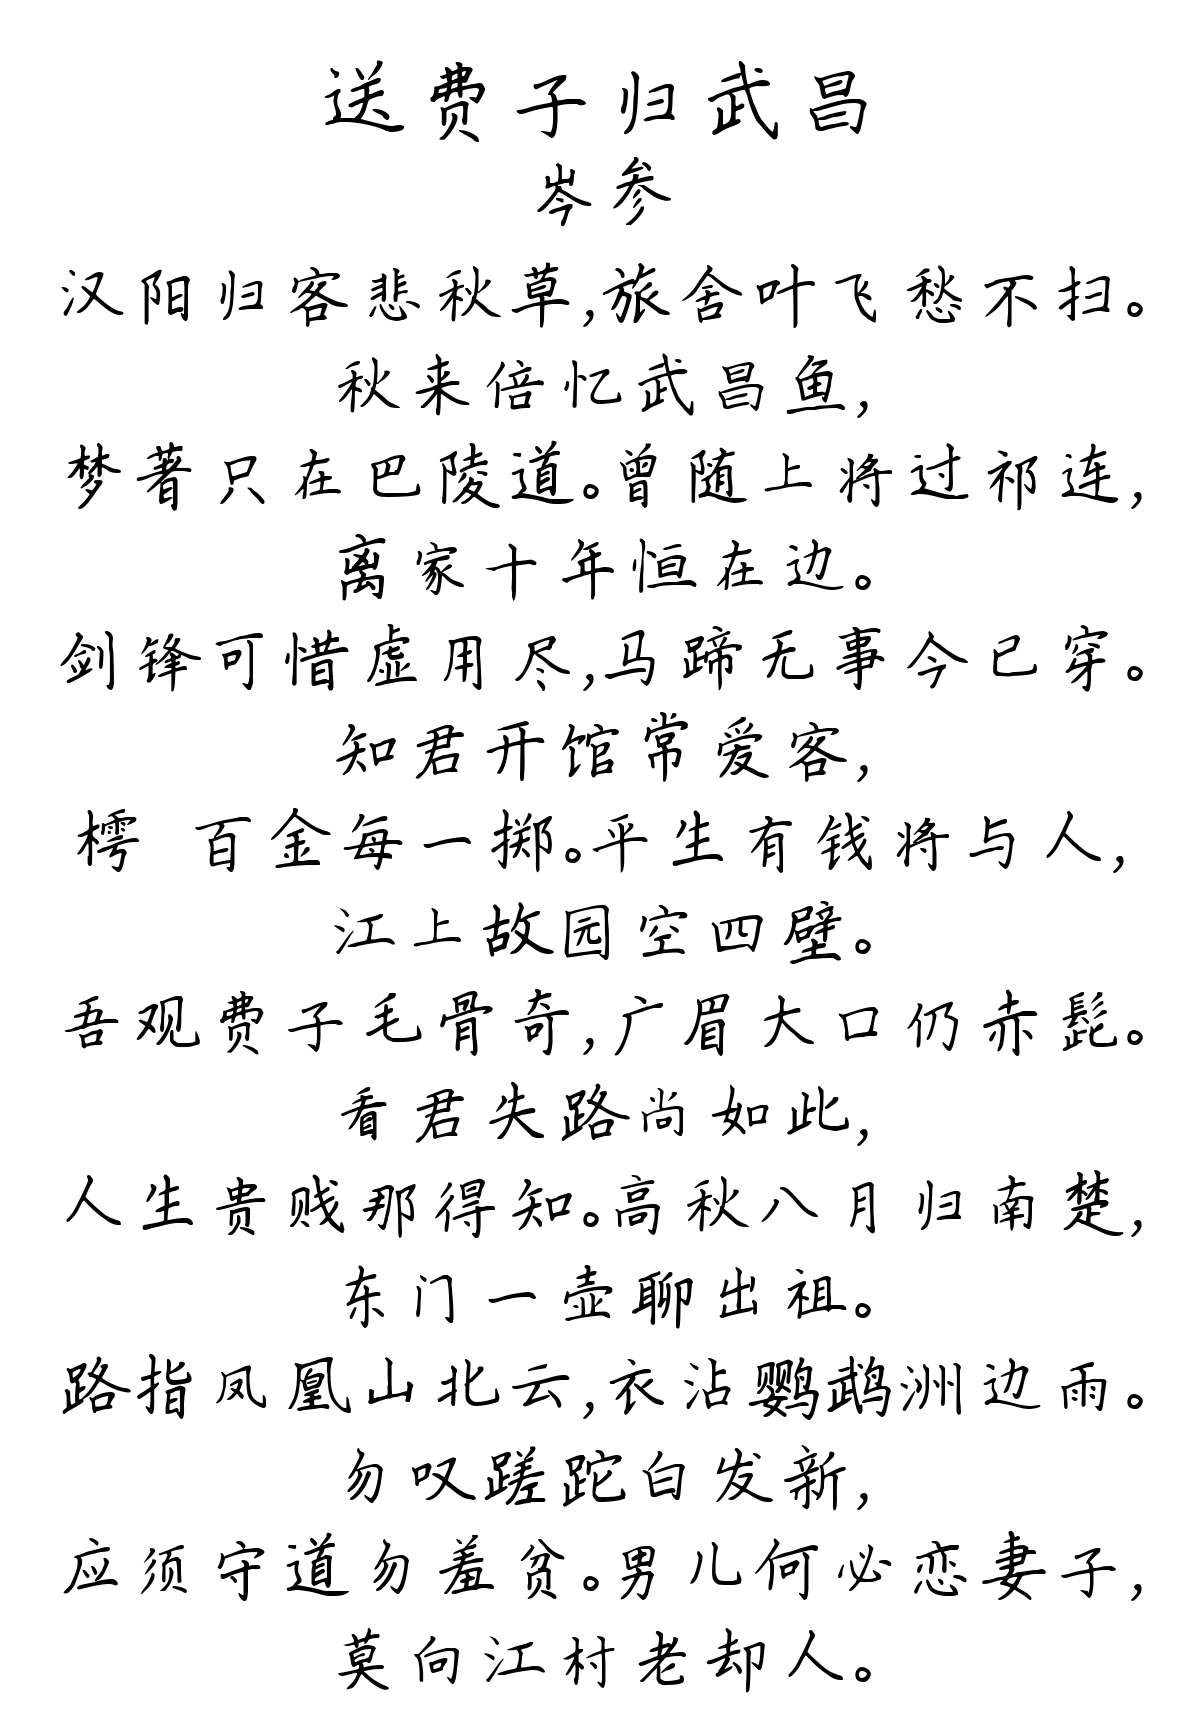 送费子归武昌
岑参
汉阳归客悲秋草,旅舍叶飞愁不扫。
秋来倍忆武昌鱼,
梦著只在巴陵道。曾随上将过祁连,
离家十年恒在边。
剑锋可惜虚用尽,马蹄无事今已穿。
知君开馆常爱客,
樗 百金每一掷。平生有钱将与人,
江上故园空四壁。
吾观费子毛骨奇,广眉大口仍赤髭。
看君失路尚如此,
人生贵贱那得知。高秋八月归南楚,
东门一壶聊出祖。
路指凤凰山北云,衣沾鹦鹉洲边雨。
勿叹蹉跎白发新,
应须守道勿羞贫。男儿何必恋妻子,
莫向江村老却人。